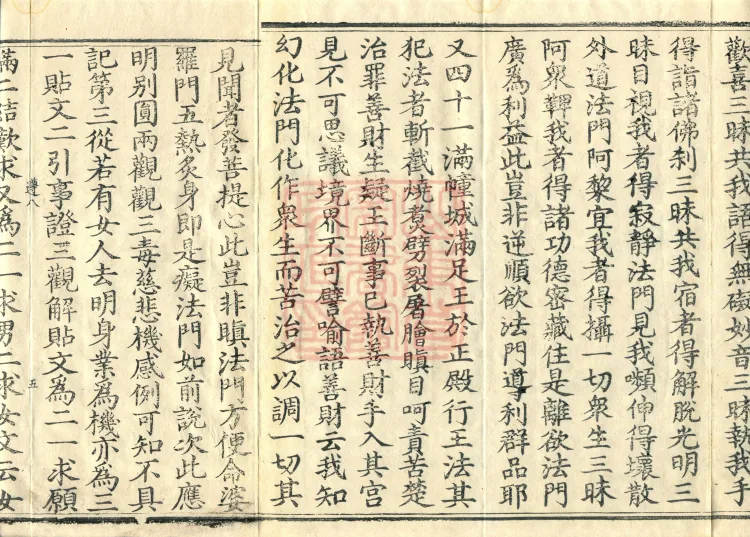 歡喜三昧共我語得無礙妙音三昧執我手
得詣諸佛刹三昧共我宿者得解脫光明三
昧目視我者得寂靜法門見我嚬伸得壞散
外道法門阿黎宜我者得攝一切衆生三昧
阿衆鞞我者得諸功德密藏住是離欲法門
廣爲利益此豈非逆順欲法門導利群品耶
又四十一滿幢城滿足王於正殿行王法其
犯法者斬截燒煑劈裂屠膾瞋目呵責苦楚
治罪善財生疑王斷事已執善財手入其宮
見不可思議境界不可譬喻語善財云我知
幻化法門化作衆生而苦治之以調一切其
見聞者發菩提心此豈非瞋法門方便命婆
羅門五熱炙身即是癡法門如前說次此應
明别圓兩觀觀三毒慈悲機感例可知不具
記第三從若有女人去明身業爲機亦爲三
一貼文二引事證三觀解貼文爲二一求願
滿二結歎求又爲二一求男二求女文云女
遵八
五